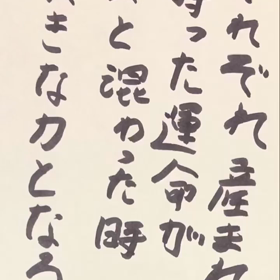 それぞれ 産まれ
った運命が
と混わった時
きな力となる